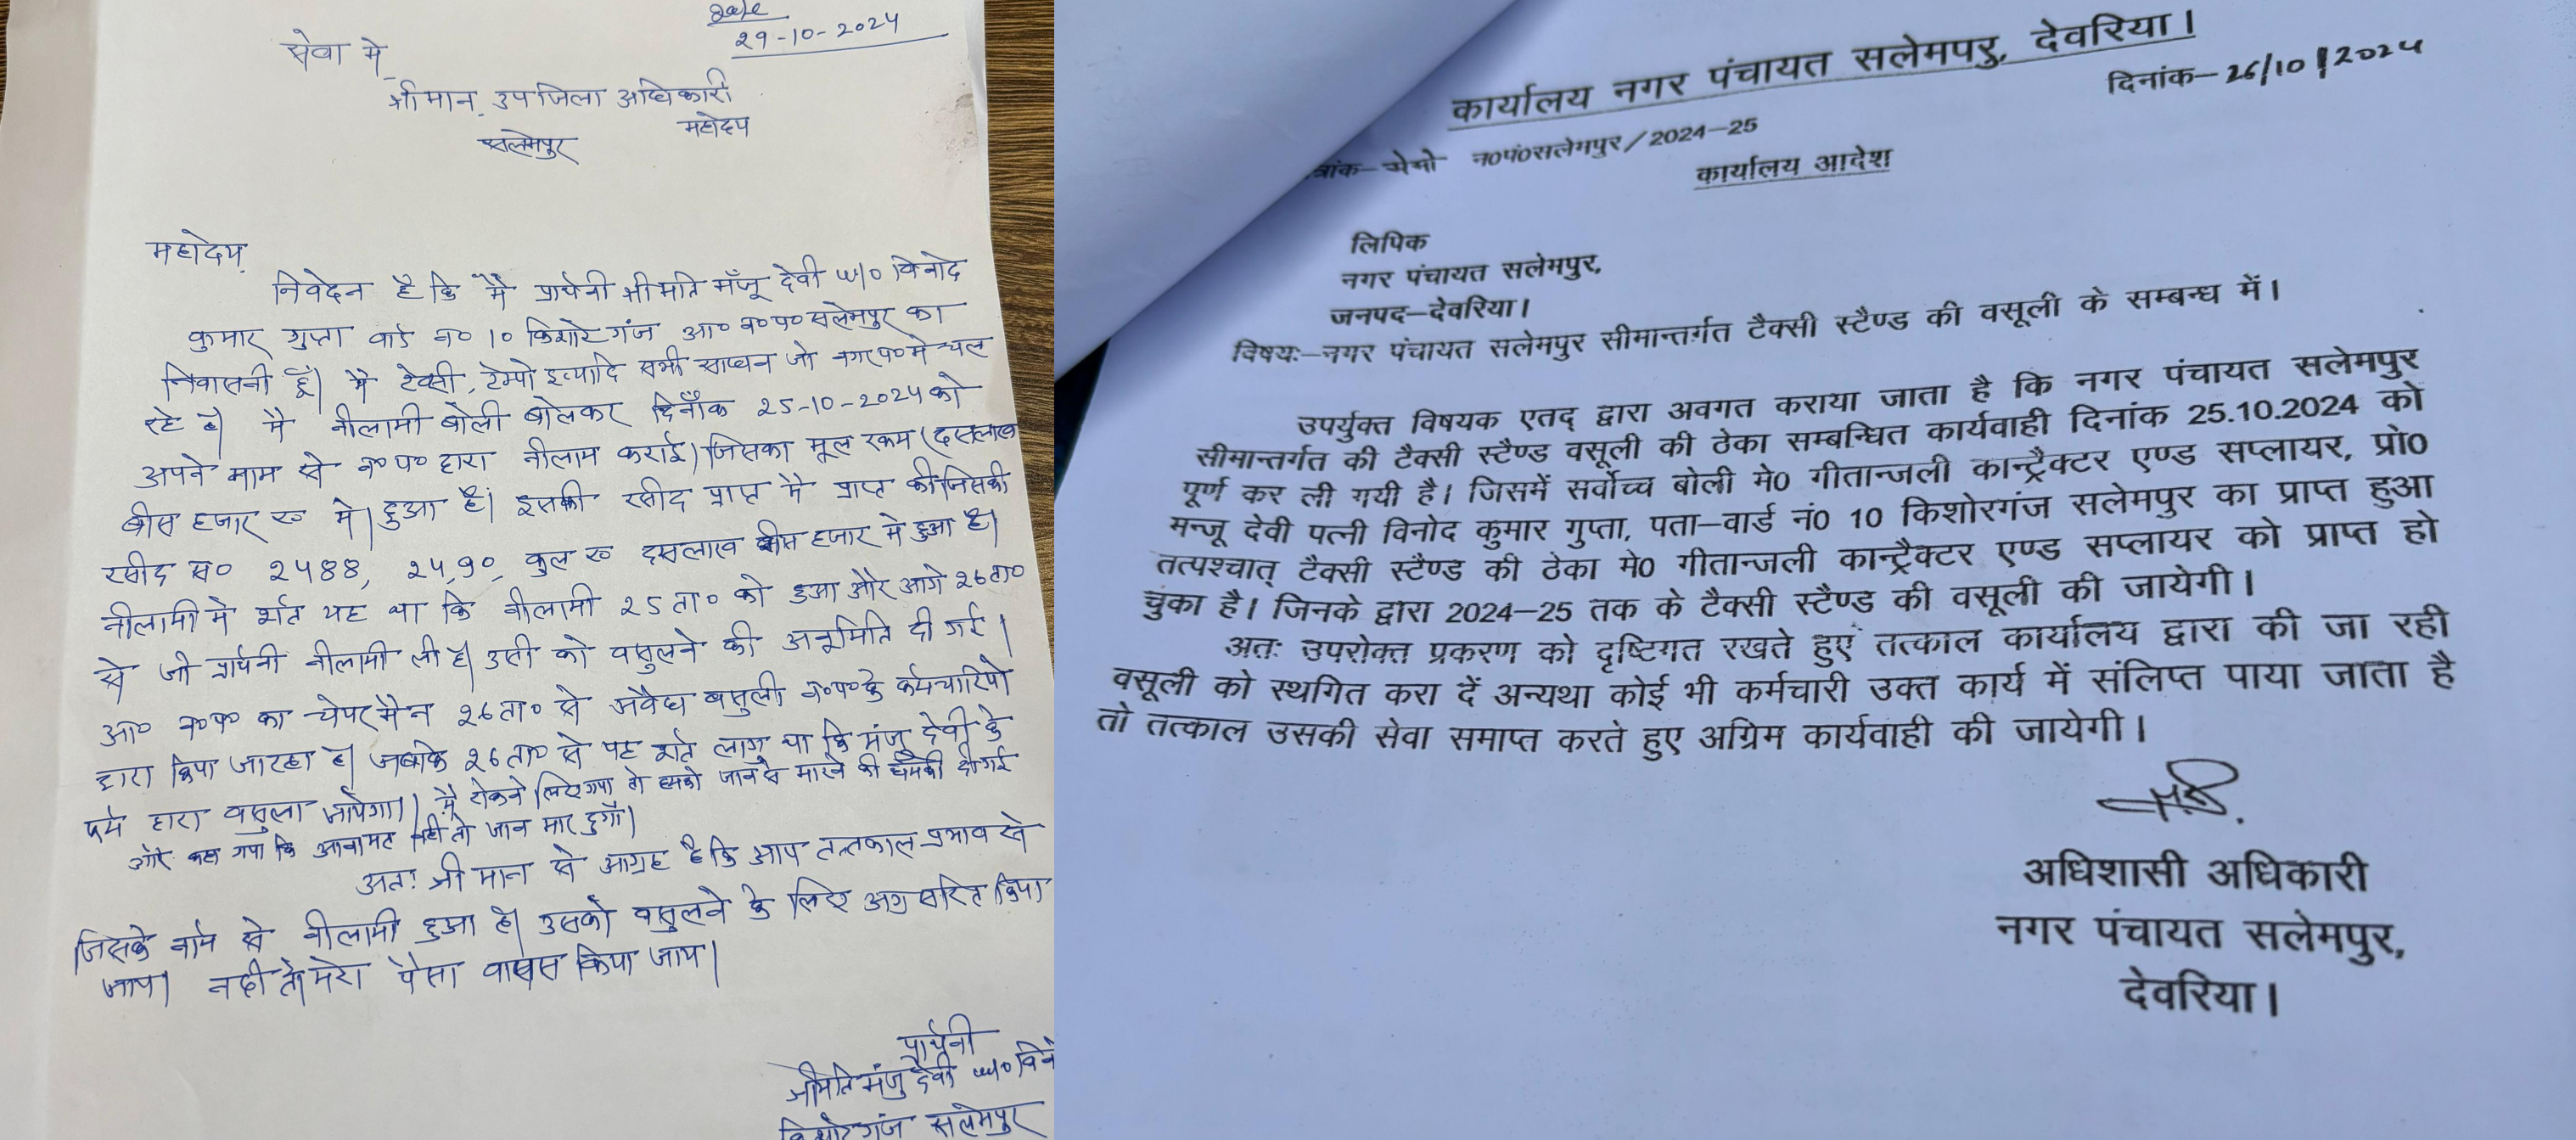 Date
29-10-2024
सेवा मे
श्रीमान उप जिला अधिकारी
महोदय
सलेमपुर
महोदय
निवेदन है कि मै प्रार्थनी श्रीमति मँजू देवी w/o विनोद
कुमार गुप्ता वार्ड न० 10 किशोरेगंज आ० न०प० सलेमपुर का
निवासनी हूँ। मै टेक्सी, टेम्पो इत्यादि सभी साधन जो नगर प० मे चल
रहे है। मै नीलामी बोली बोलकर दिनाँक 25-10-2024 को
अपने नाम से न०प० द्वारा नीलाम कराई। जिसका मूल रकम (दसलाख
बीस हजार रु० मे। हुआ है। इसकी रसीद प्राप्त मै प्राप्त की जिसकी
रसीद स० 2488, 24,90, कुल रु० दसलाख बीस हजार मे हुआ है।
नीलामी मे शर्त यह था कि नीलामी 25 ता० को हुआ और आगे 26 ता०
से जो प्रार्थनी नीलामी ली है। उसी को वसुलने की अनुमिति दी गई।
आ० न०प० का चेयरमैन 26 ता० से अवैध वसुली न०प० के कर्मचारियो
द्वारा किया जा रहा है। जबकि 26 ता० से यह शर्त लागु था कि मंजु देवी के
फर्म द्वारा वसुला जायेगा। मै रोकने लिए गया तो हमको जान से मारने की धमकी दी गई
और कहा गया कि आना मत नही तो जान मार दुगाँ।
अतः श्री मान से आग्रह है कि आप तत्तकाल प्रभाव से
जिसके नाम से नीलामी हुआ है। उसको वसुलने के लिए अग्रसरित किया
जाय। नही तो मेरा पैसा वापस किया जाय।
प्रार्थनी
श्रीमति मंजु देवी w/o
किशोरेगंज सलेमपुर
कार्यालय नगर पंचायत सलेमपरु, देवरिया।
दिनांक– 26/10/2024
न0पं0सलेमपुर/2024–25
कार्यालय आदेश
लिपिक
नगर पंचायत सलेमपुर,
जनपद–देवरिया।
विषयः–नगर पंचायत सलेमपुर सीमान्तर्गत टैक्सी स्टैण्ड की वसूली के सम्बन्ध में।
उपर्युक्त विषयक एतद् द्वारा अवगत कराया जाता है कि नगर पंचायत सलेमपुर
सीमान्तर्गत की टैक्सी स्टैण्ड वसूली की ठेका सम्बन्धित कार्यवाही दिनांक 25.10.2024 को
पूर्ण कर ली गयी है। जिसमें सर्वोच्च बोली मे0 गीतान्जली कान्ट्रैक्टर एण्ड सप्लायर, प्रो0
मन्जू देवी पत्नी विनोद कुमार गुप्ता, पता–वार्ड नं0 10 किशोरगंज सलेमपुर का प्राप्त हुआ
तत्पश्चात् टैक्सी स्टैण्ड की ठेका मे0 गीतान्जली कान्ट्रैक्टर एण्ड सप्लायर को प्राप्त हो
चुंका है। जिनके द्वारा 2024–25 तक के टैक्सी स्टैण्ड की वसूली की जायेगी।
अतः उपरोक्त प्रकरण को दृष्टिगत रखते हुए तत्काल कार्यालय द्वारा की जा रही
वसूली को स्थगित करा दें अन्यथा कोई भी कर्मचारी उक्त कार्य में संलिप्त पाया जाता है
तो तत्काल उसकी सेवा समाप्त करते हुए अग्रिम कार्यवाही की जायेगी।
अधिशासी अधिकारी
नगर पंचायत सलेमपुर,
देवरिया।